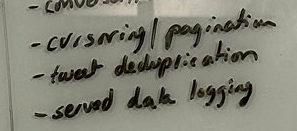 - cursoring/pagination
- tweet deduplication
- served data logging